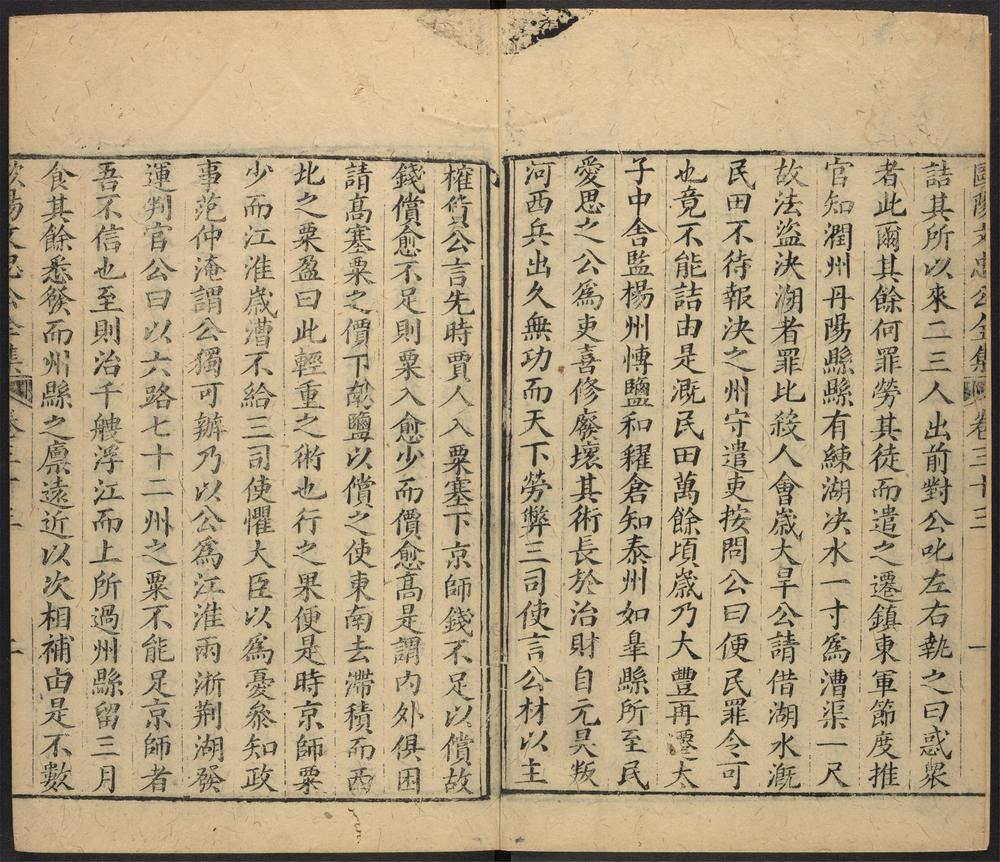 歐陽文忠公全集 卷三十三
詰其所以來二三人出前對公叱左右執之曰惑衆
者此爾其餘何罪勞其徒而遣之遷鎮東軍節度推
官知潤州丹陽縣縣有練湖决水一寸爲漕渠一尺
故法盜決湖者罪比殺人會歲大旱公請借湖水溉
民田不待報決之州守遣吏按問公曰便民罪令可
也竟不能詰由是溉民田萬餘頃歲乃大豐再遷太
子中舍監楊州博鹽和糴倉知泰州如臯縣所至民
愛思之公爲吏喜修廢壞其術長於治財自元昊叛
河西兵出久無功而天下勞弊三司使言公材以主
榷貨公言先時賈人入粟塞下京師錢不足以償故
錢償愈不足則粟入愈少而價愈高是謂內外俱困
請高塞粟之價下南鹽以償之使東南去滯積而西
北之粟盈曰此輕重之術也行之果便是時京師粟
少而江淮歲漕不給三司使懼大臣以爲憂叅知政
事范仲淹謂公獨可辦乃以公爲江淮兩浙荆湖發
運判官公曰以六路七十二州之粟不能足京師者
吾不信也至則治千艘浮江而上所過州縣留三月
食其餘悉發而州縣之廩遠近以次相補由是不數
歐陽文忠公全集 卷三十三